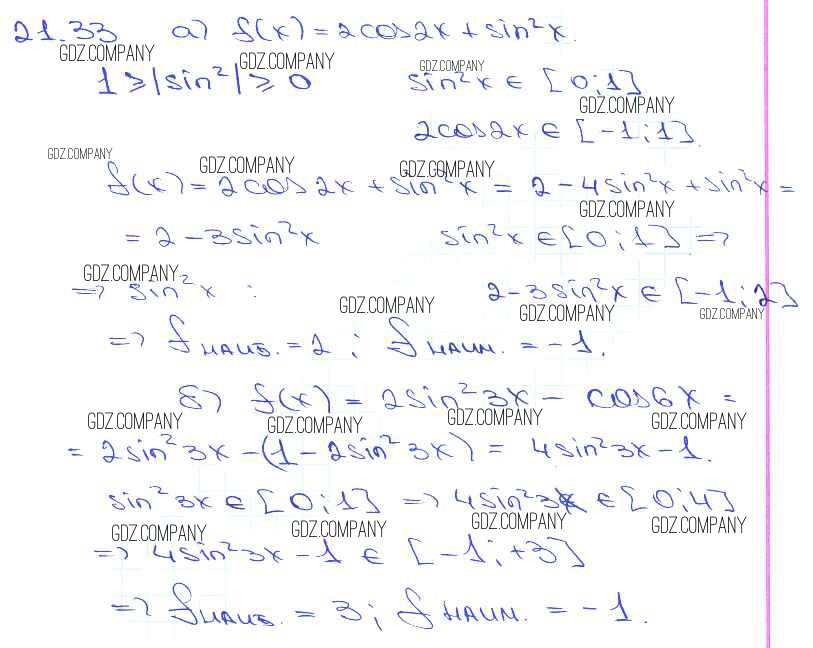 21.33 а) f(x) = 2cos2x + sin²x.
GDZ.COMPANY GDZ.COMPANY GDZ.COMPANY
1 ≥ |sin²| ≥ 0 sin²x ∈ [0;1]
GDZ.COMPANY
2cos2x ∈ [-1;1].
GDZ.COMPANY GDZ.COMPANY GDZ.COMPANY
f(x) = 2cos2x + sin²x = 2 - 4sin²x + sin²x =
GDZ.COMPANY
= 2 - 3sin²x sin²x ∈ [0;1] =>
GDZ.COMPANY
=> sin²x : 2 - 3sin²x ∈ [-1;2]
GDZ.COMPANY GDZ.COMPANY GDZ.COMPANY
=> f наиб. = 2 ; f наим. = -1.
б) f(x) = 2sin²3x - cos6x =
GDZ.COMPANY GDZ.COMPANY GDZ.COMPANY GDZ.COMPANY
= 2sin²3x - (1 - 2sin²3x) = 4sin²3x - 1.
sin²3x ∈ [0;1] => 4sin²3x ∈ [0;4]
GDZ.COMPANY GDZ.COMPANY GDZ.COMPANY GDZ.COMPANY
=> 4sin²3x - 1 ∈ [-1;+3]
=> f наиб. = 3; f наим. = -1.